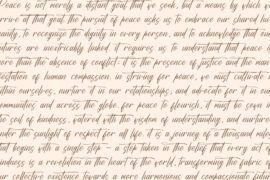 Peace is not merely a distant goal that we seek, but a means by which we
arrive at that goal. the pursuit of peace asks us to embrace our shared hu
manity, to recognize the dignity in every person, and to acknowledge that
futures are inextricably linked. it requires us to understand that peace is
more than the absence of conflict; it is the presence of justice and the man
ifestation of human compassion. in striving for peace, we must cultivate
within ourselves, nurture it in our relationships, and advocate for it in
communities and across the globe. peace to flourish, it must be sown
the soil of kindness, watered with the wisdom of understanding, and nurture
under the sunlight of respect for all life. it is a journey of a thousand mile
that begins with a single step – a step taken in the belief that every act of
kindness is a revolution in the heart of the world, transforming the fabric
our collective existence towards a more harmonious and compassionate